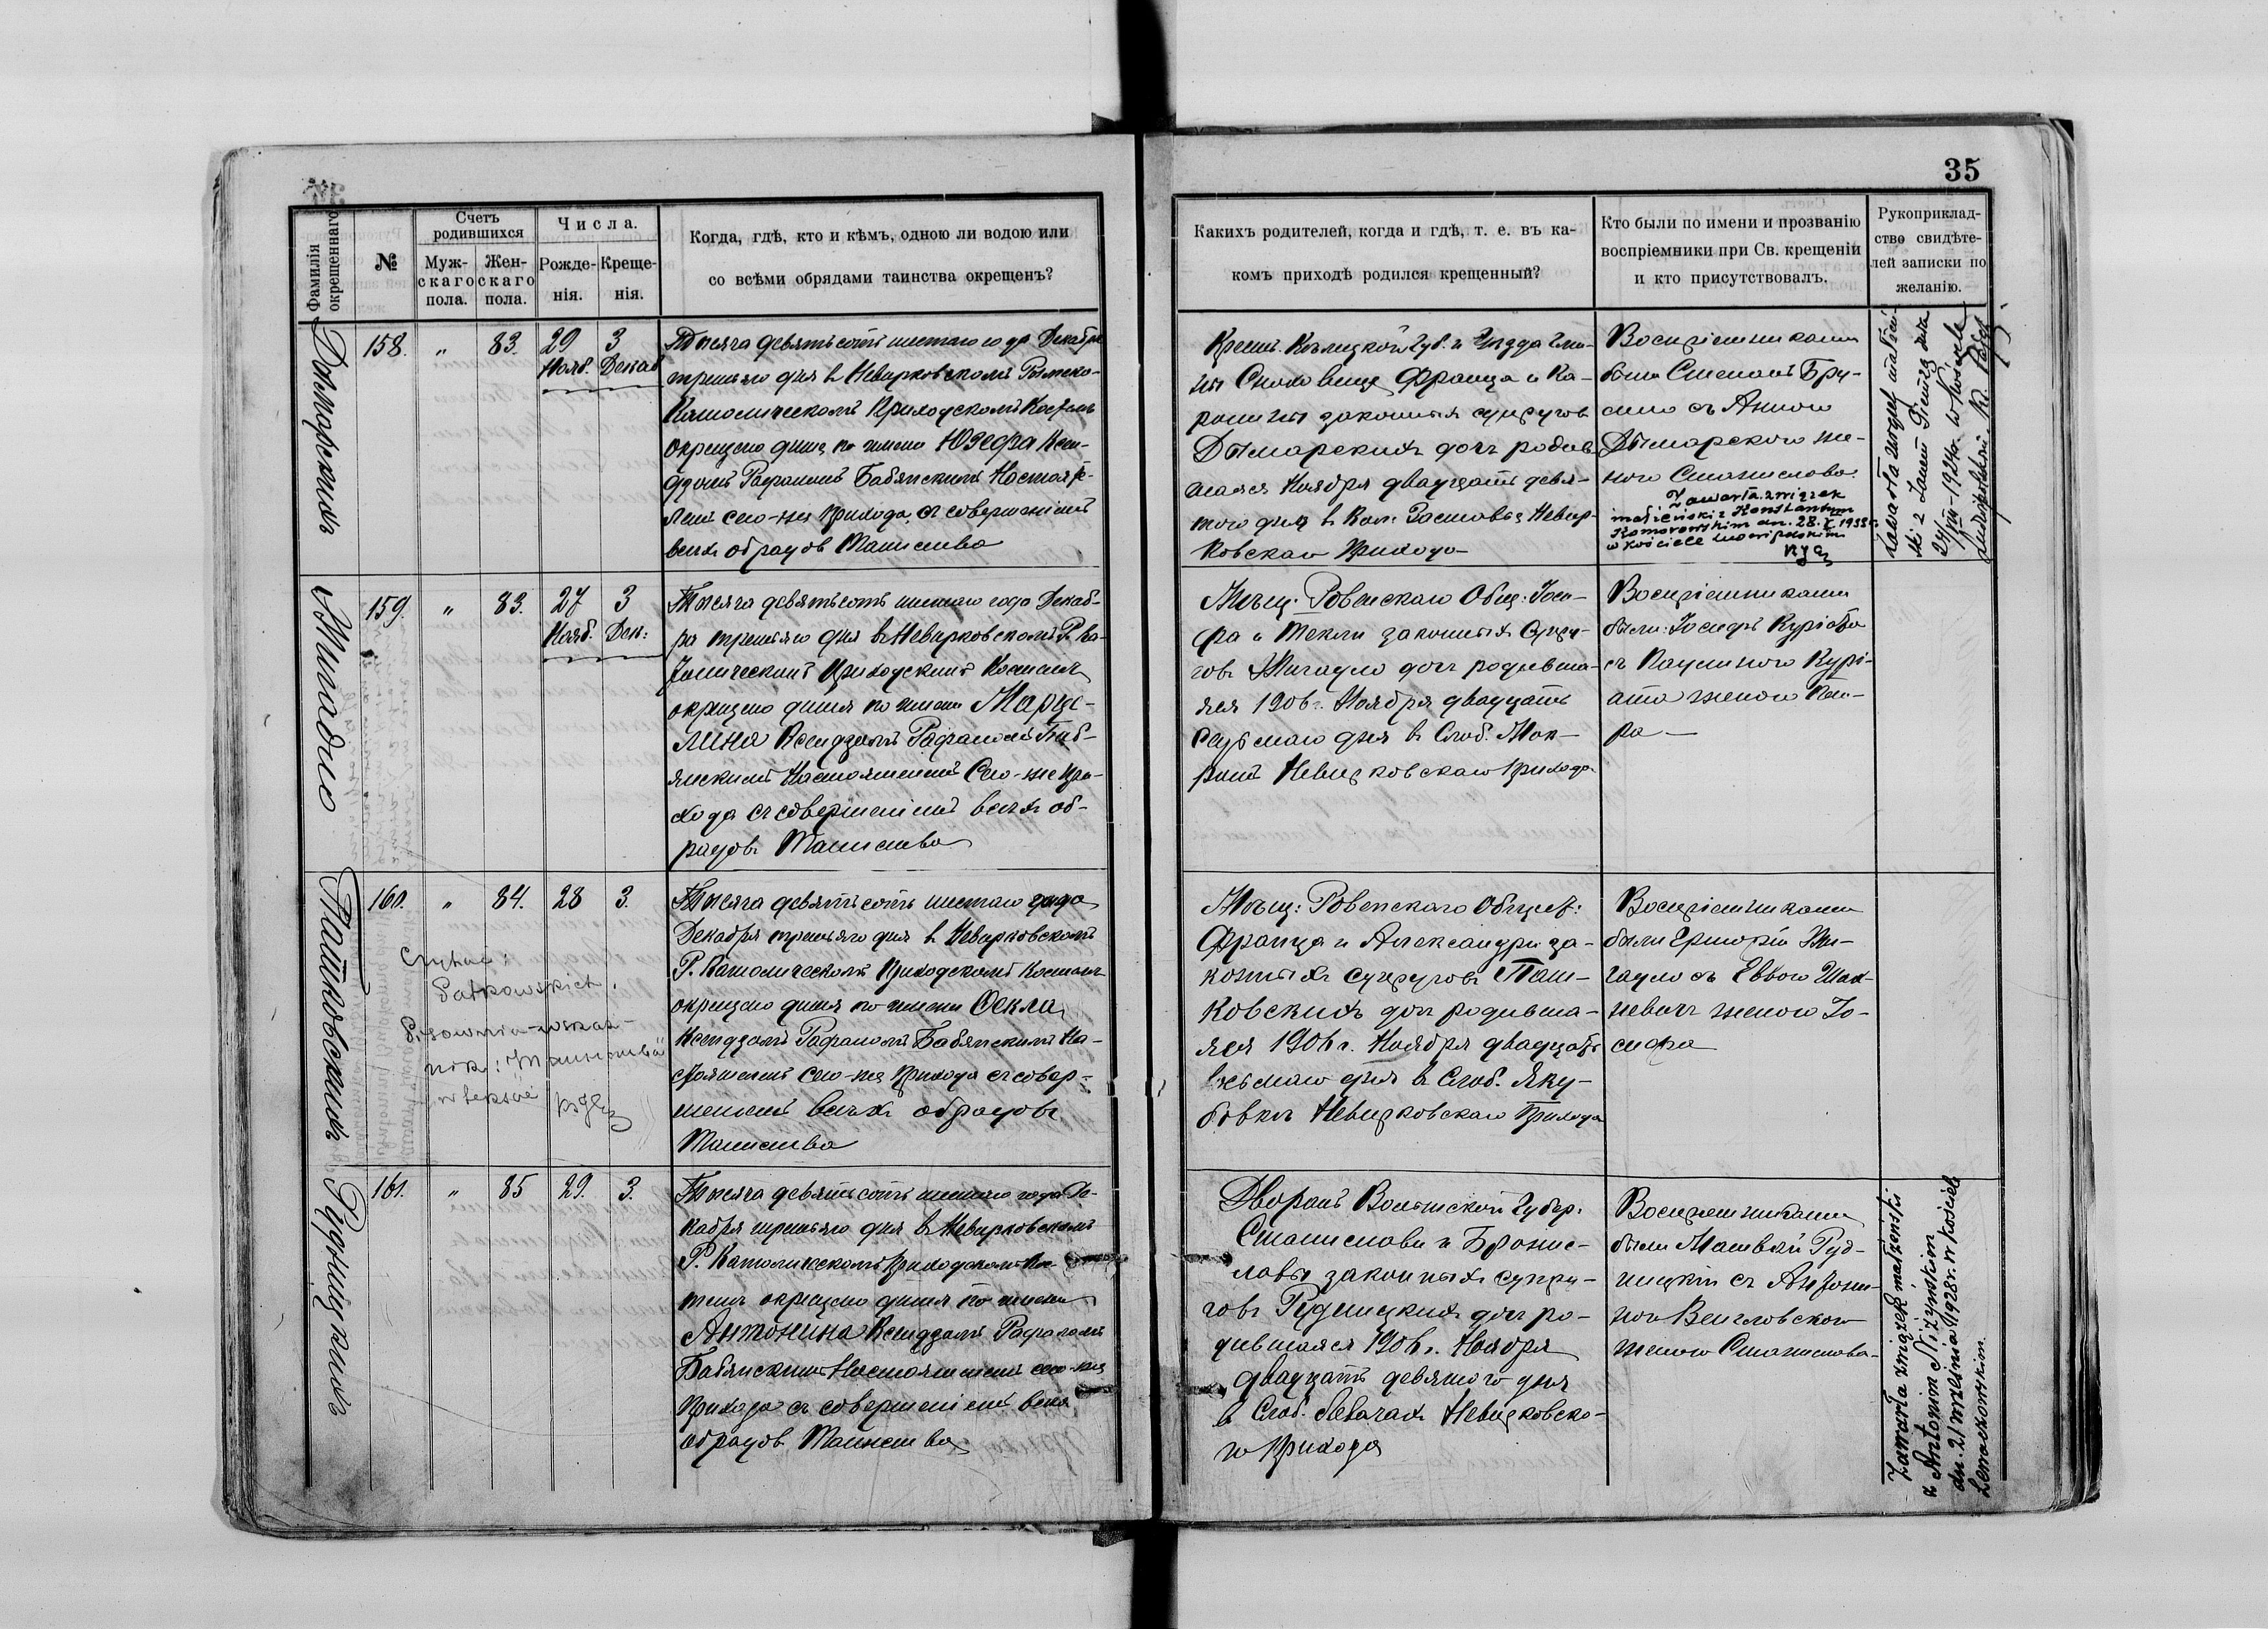 35
Фамилія окрещеннаго
№
Счетъ родившихся
Муж-
скаго
пола.
Жен-
скаго
пола.
Числа.
Рожде-
нія.
Креще-
нія.
Когда, гдѣ, кто и кѣмъ, одною ли водою или
со всѣми обрядами таинства окрещенъ?
Какихъ родителей, когда и гдѣ, т. е. въ ка-
комъ приходѣ родился крещенный?
Кто были по имени и прозванію
воспріемники при Св. крещеніи
и кто присутствовалъ.
Рукоприклад-
ство свидѣте-
лей записки по
желанію.
Дымарскихъ
158.
"
83.
29
Нояб.
3
Декаб
Тысяча девятьсотъ шестаго года Декабря
третьяго дня въ Невирковскомъ Римско-
Католическомъ Приходскомъ Костелѣ
окрещено дитя по имени Юзефа Ксен-
дзомъ Рафаломъ Бабянскимъ Настояте-
лемъ сего-же Прихода, съ совершеніемъ
всѣхъ обрядовъ Таинства
Крест. Кѣлецкой Губ. и Уѣзда Гми-
ны Франца и Ка-
ролины законныхъ супруговъ
Дымарскихъ дочь родив
шаяся Ноября двадцать девя-
таго дня въ Кол. Невир-
ковскаго Прихода
Воспріемниками
были Степанъ
съ Анною
Дымарскою же-
ною Станислава.
Zawarła związek
małżeński z Konstantym
Komorowskim dn. 28.X.1933 r.
w kościele ludwipolskim
Zawarła związek małżeń-
ski z Janem dnia
24/VIII-1924 r. w kościele
ludwipolskim.
Жигадло
159.
"
83.
27
Нояб.
3
Дек:
Тысяча девятьсотъ шестаго года Декаб-
ря третьяго дня въ Невирковскомъ Р. Ка-
толическомъ Приходскомъ Костелѣ
окрещено дитя по имени Марце-
лина Ксендзомъ Рафаломъ Баб-
янскимъ Настоятелемъ Сего-же При-
хода съ совершеніемъ всѣхъ об-
рядовъ Таинства
Мѣщ. Ровенскаго Общ: Іоси-
фа и Текли законныхъ Супру-
говъ Жигадло дочь родивша-
яся 1906 г. Ноября двадцать
седьмаго дня въ Слоб. Мок-
Невирковскаго Прихода
Воспріемниками
были: Іосифъ Куріата
съ Паулиною Курі-
ата женою Пет-
ра —
Патковскихъ
160.
"
84.
28
3.
Czytać:
Patkowskich.
Pisownia
w tekście
Тысяча девятьсотъ шестаго года
Декабря третьяго дня въ Невирковскомъ
Р. Католическомъ Приходскомъ Костелѣ
окрещено дитя по имени Ѳекла
Ксендзомъ Рафаломъ Бабянскимъ На-
стоятелемъ сего-же Прихода съ совер-
шеніемъ всѣхъ обрядовъ
Таинства
Мѣщ: Ровенскаго Общест:
Франца и Александры за-
конныхъ супруговъ Пат-
ковскихъ дочь родивша-
яся 1906 г. Ноября двадцать
восьмаго дня въ Слоб. Яку-
бовкѣ Невирковскаго Прихода
Воспріемниками
были Григорій Жи-
гадло съ Еввою
женою Іо-
сифа
Рудницкихъ
161.
"
85
29.
3.
Тысяча девятьсотъ шестаго года Де-
кабря третьяго дня въ Невирковскомъ
Р. Католическомъ Приходскомъ Кос-
телѣ окрещено дитя по имени
Антонина Ксендзомъ Рафаломъ
Бабянскимъ Настоятелемъ сего-же
Прихода съ совершеніемъ всѣхъ
обрядовъ Таинства
Дворянъ Волынской Губер.
Станислава и Бронис-
лавы законныхъ супру-
говъ Рудницкихъ дочь ро-
дившаяся 1906 г. Ноября
двадцать девятаго дня
въ Слоб. Левачахъ Невирковска-
го Прихода
Воспріемниками
были Матвѣй Руд-
ницкій съ Антони-
ною Венгловскою
женою Станислава
Zawarła związek małżeński
z Antonim Niżyńskim
dn. 21 września 1928 r. w kościele